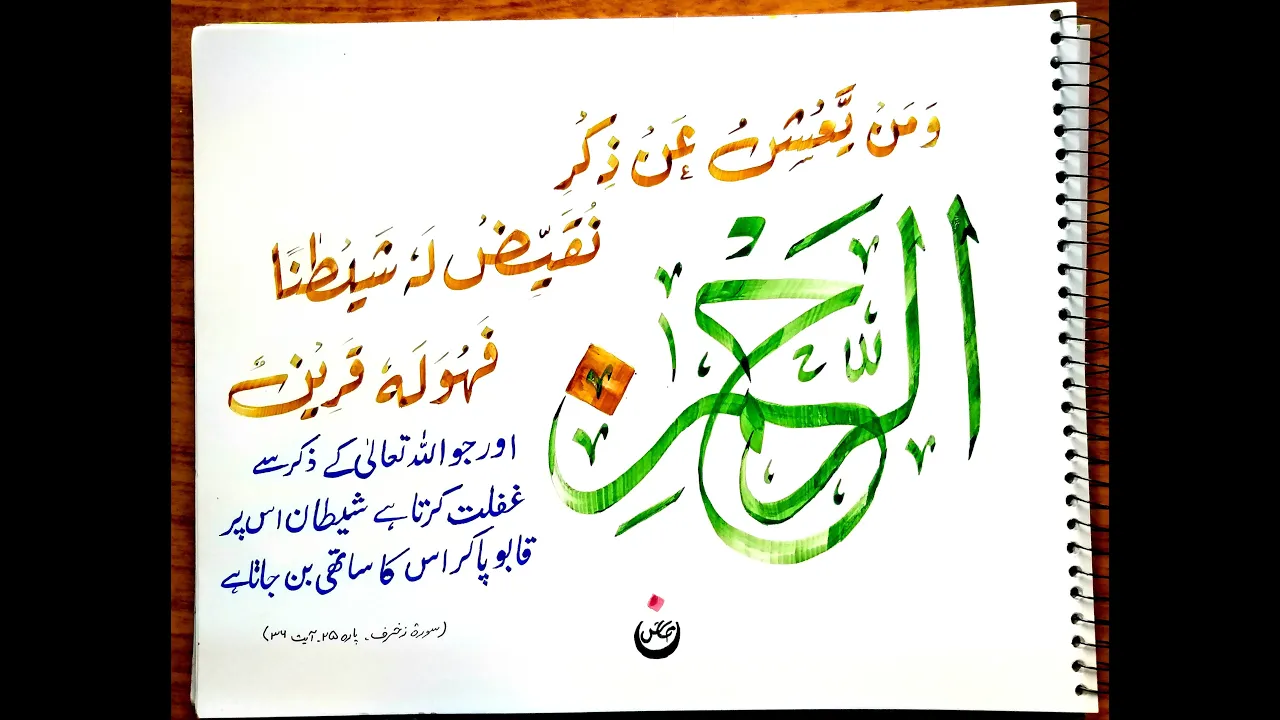 وَمَنْ يَّعْشُ عَنْ ذِكْرِ
الرَّحْمٰنِ
نُقَيِّضْ لَهٗ شَيْطٰنًا
فَهُوَ لَهٗ قَرِيْنٌ
اور جو اللہ تعالیٰ کے ذکر سے
غفلت کرتا ہے شیطان اس پر
قابو پا کر اس کا ساتھی بن جاتا ہے
(سورۃ زخرف۔ پارہ ۲۵۔ آیت ۳۶)